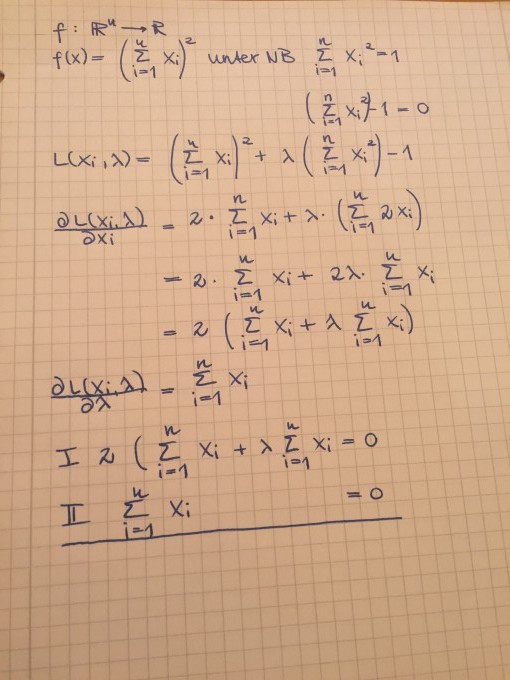 f: ℝⁿ → ℝ
f(x) = (∑_{i=1}^{n} xᵢ)² unter NB ∑_{i=1}^{n} xᵢ² = 1
(∑_{i=1}^{n} xᵢ²) - 1 = 0
L(xᵢ, λ) = (∑_{i=1}^{n} xᵢ)² + λ (∑_{i=1}^{n} xᵢ²) - 1
∂L(xᵢ, λ)/∂xᵢ = 2 · ∑_{i=1}^{n} xᵢ + λ · (∑_{i=1}^{n} 2xᵢ)
= 2 · ∑_{i=1}^{n} xᵢ + 2λ · ∑_{i=1}^{n} xᵢ
= 2 (∑_{i=1}^{n} xᵢ + λ ∑_{i=1}^{n} xᵢ)
∂L(xᵢ, λ)/∂λ = ∑_{i=1}^{n} xᵢ
I 2 (∑_{i=1}^{n} xᵢ + λ ∑_{i=1}^{n} xᵢ = 0
II ∑_{i=1}^{n} xᵢ = 0